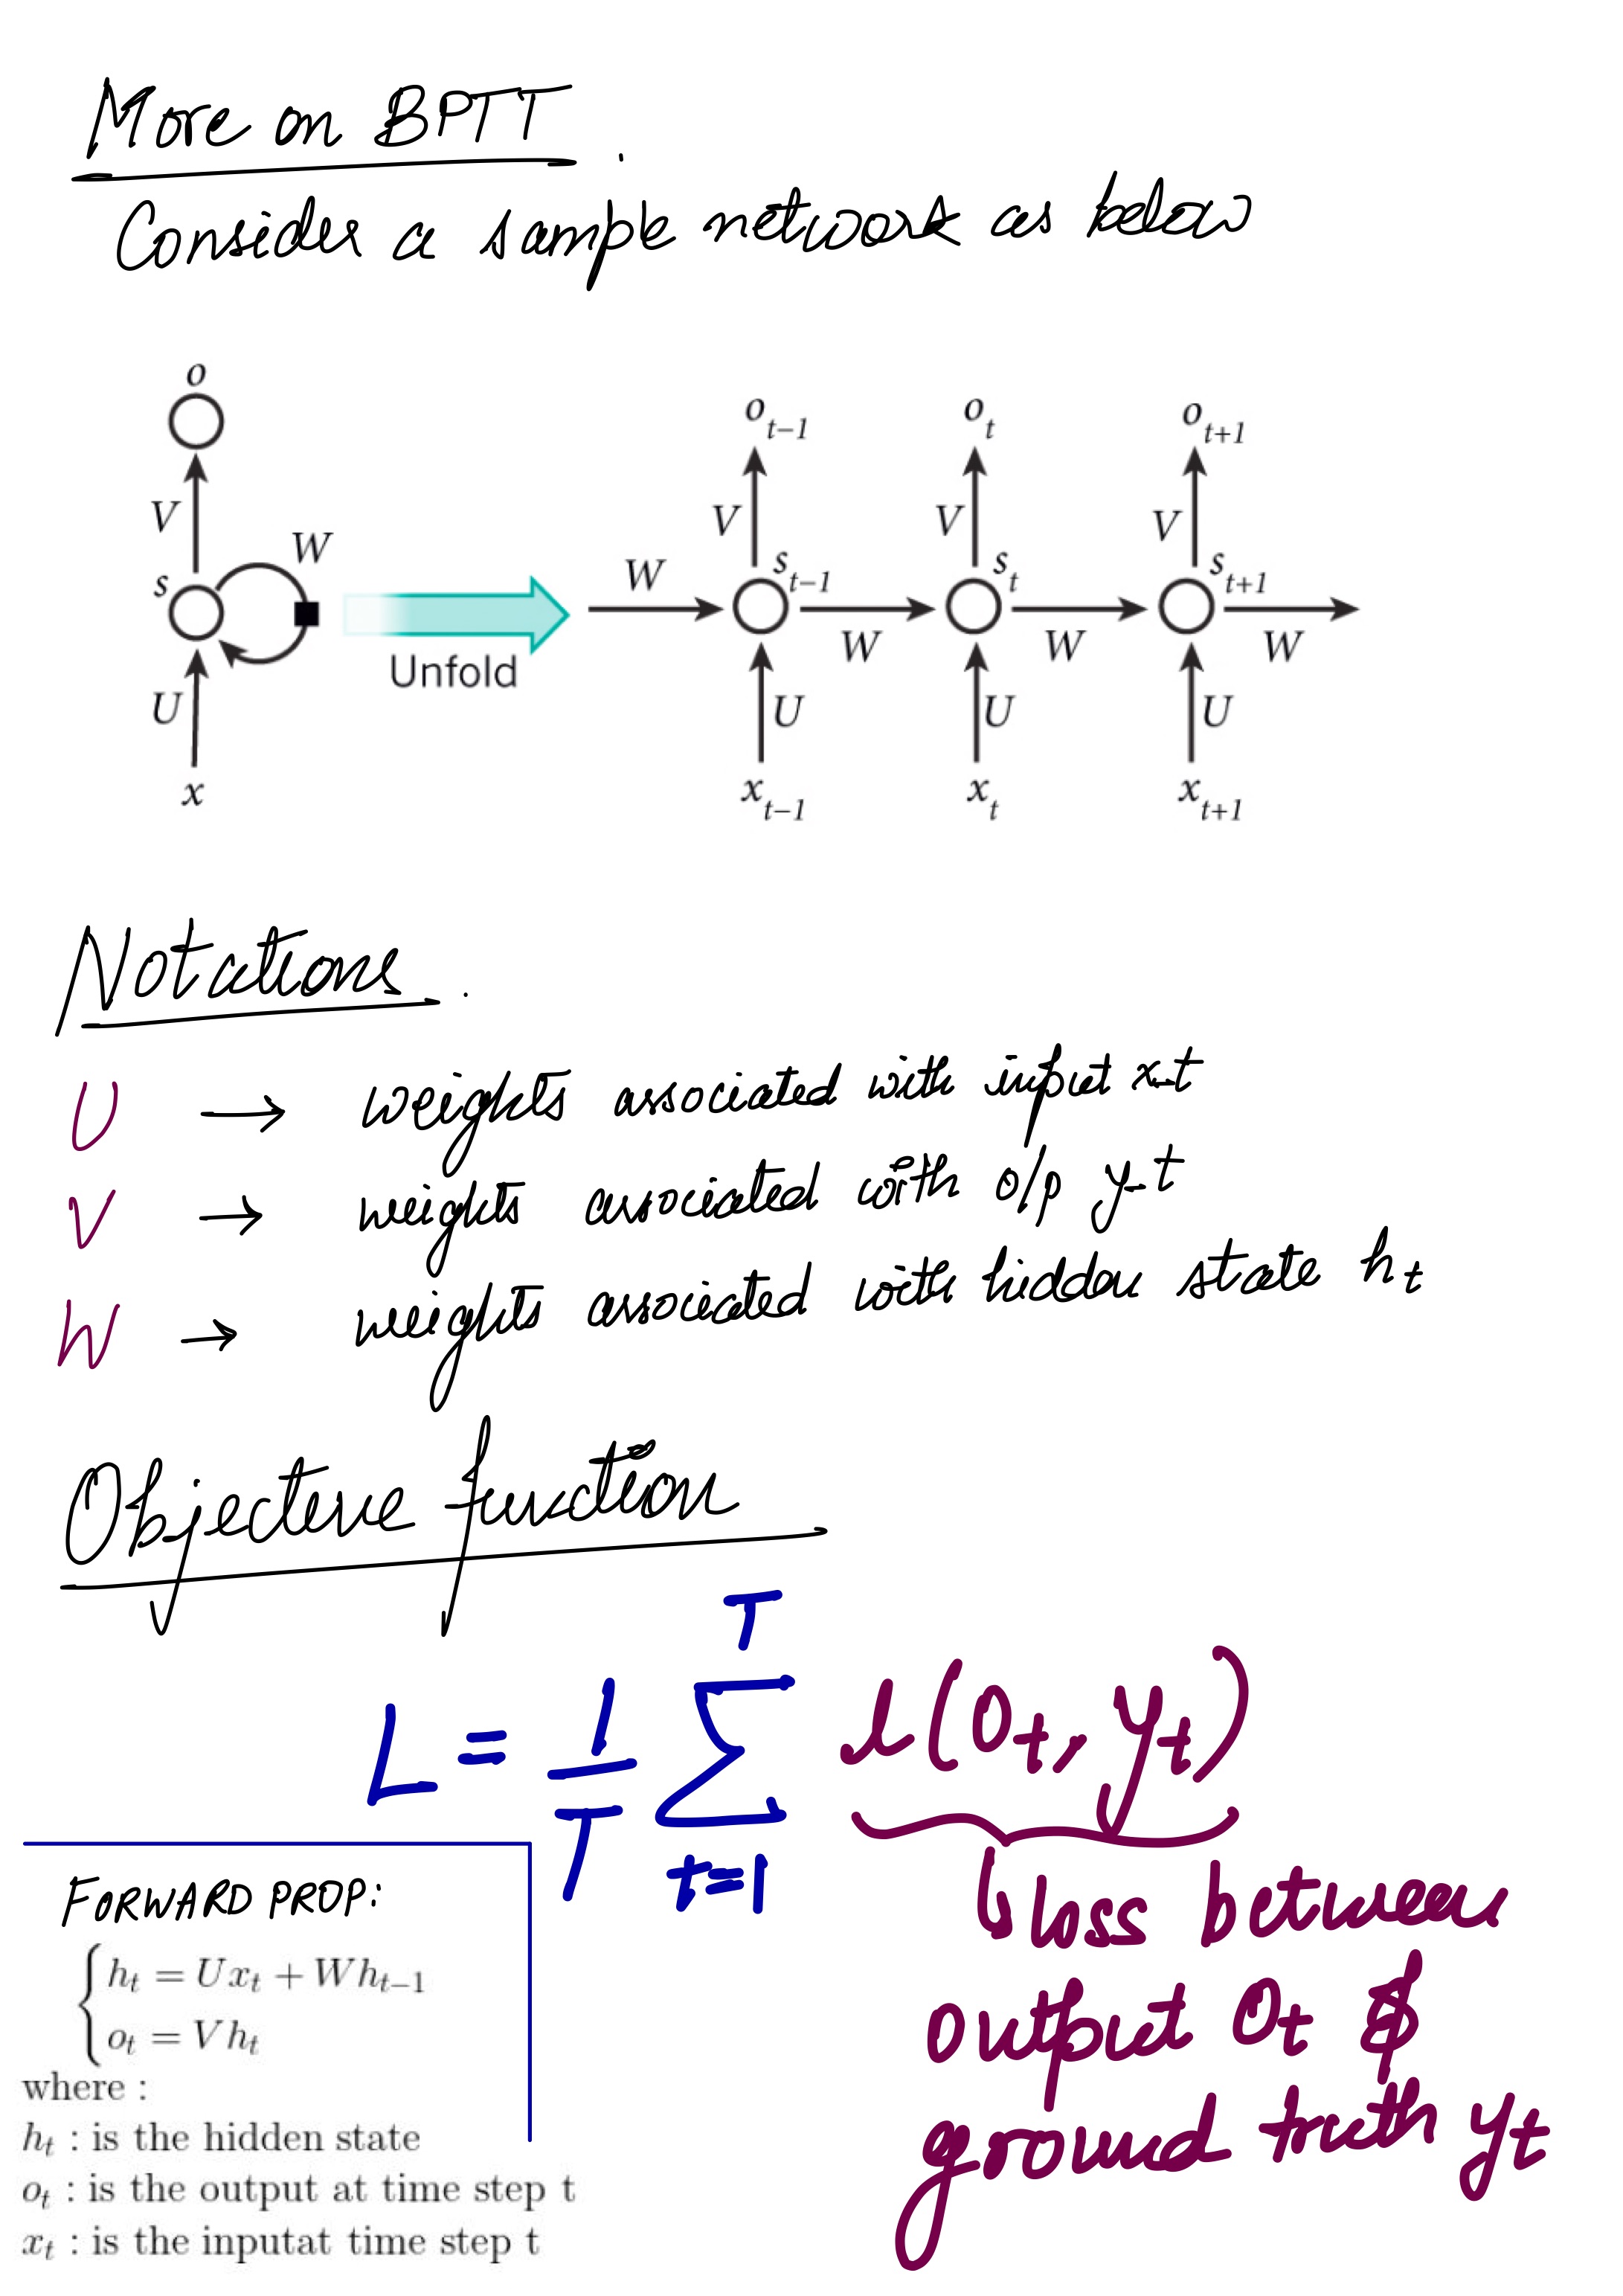 More on BPTT.
Consider a sample network as below
o
V
s
W
U
x
Unfold
o_{t-1} o_t o_{t+1}
V V V
W s_{t-1} s_t s_{t+1}
W W W
U U U
x_{t-1} x_t x_{t+1}
Notations.
U → weights associated with input x_t
V → weights associated with o/p y_t
W → weights associated with hidden state h_t
Objective function
L = \frac{1}{T} \sum_{t=1}^{T} l(O_t, y_t)
↳ loss between
output O_t &
ground truth y_t
FORWARD PROP:
{ h_t = Ux_t + Wh_{t-1}
o_t = Vh_t
where :
h_t : is the hidden state
o_t : is the output at time step t
x_t : is the inputat time step t